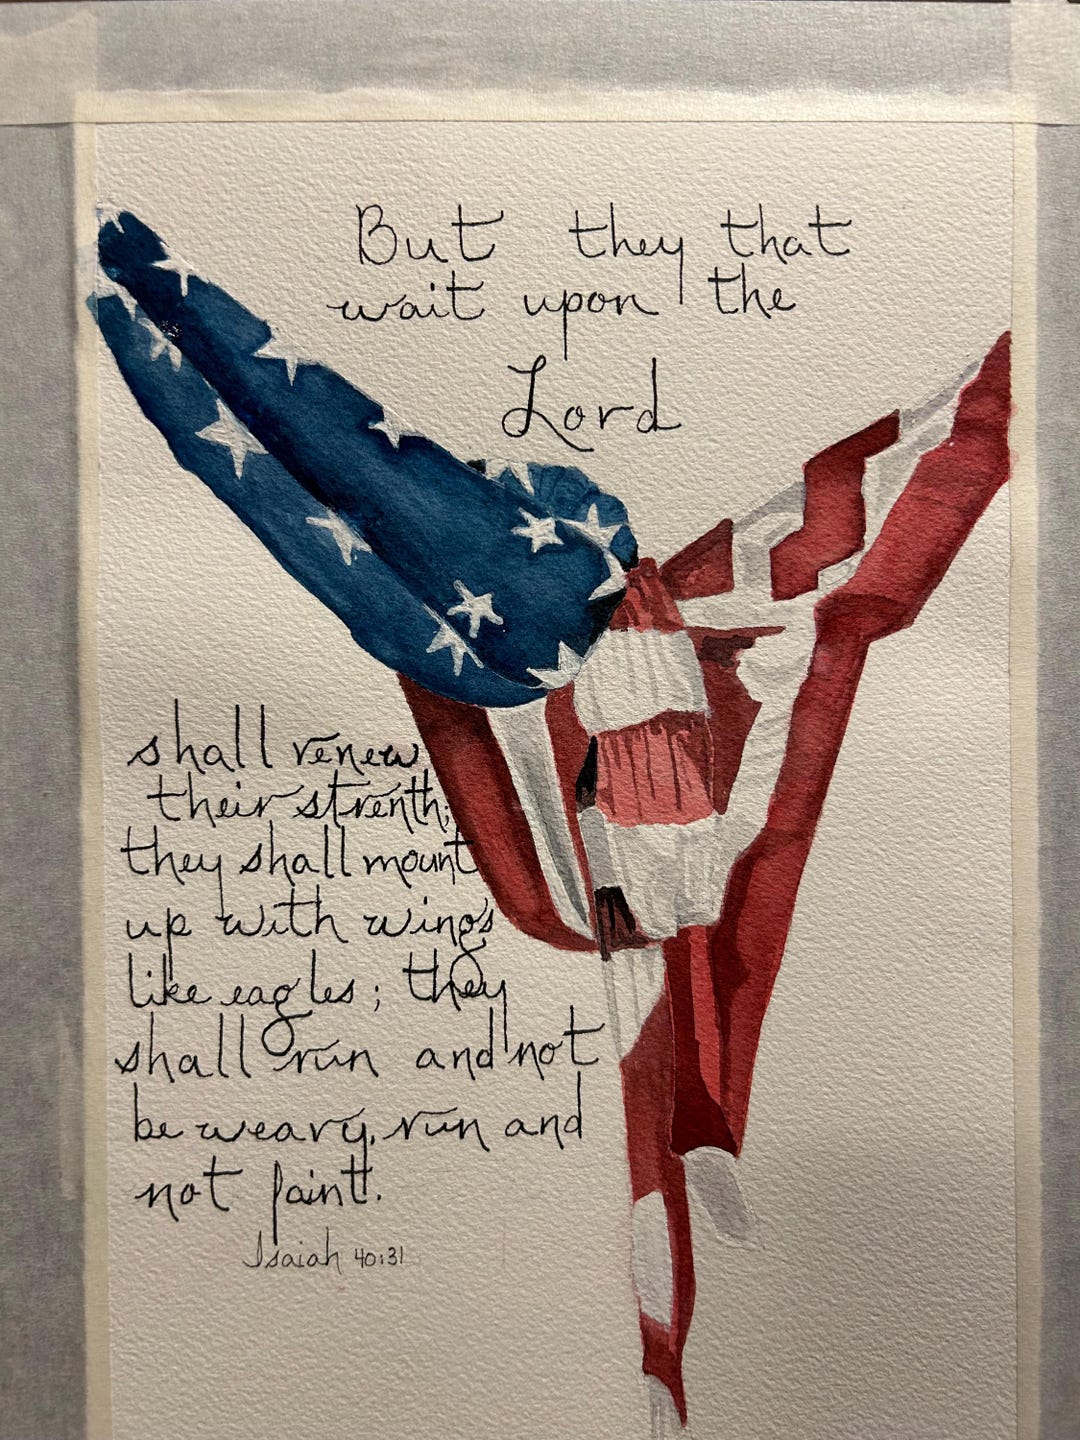 But they that
wait upon the
Lord
shall renew
their strenth;
they shall mount
up with wings
like eagles; they
shall run and not
be weary, run and
not faint.
Isaiah 40:31